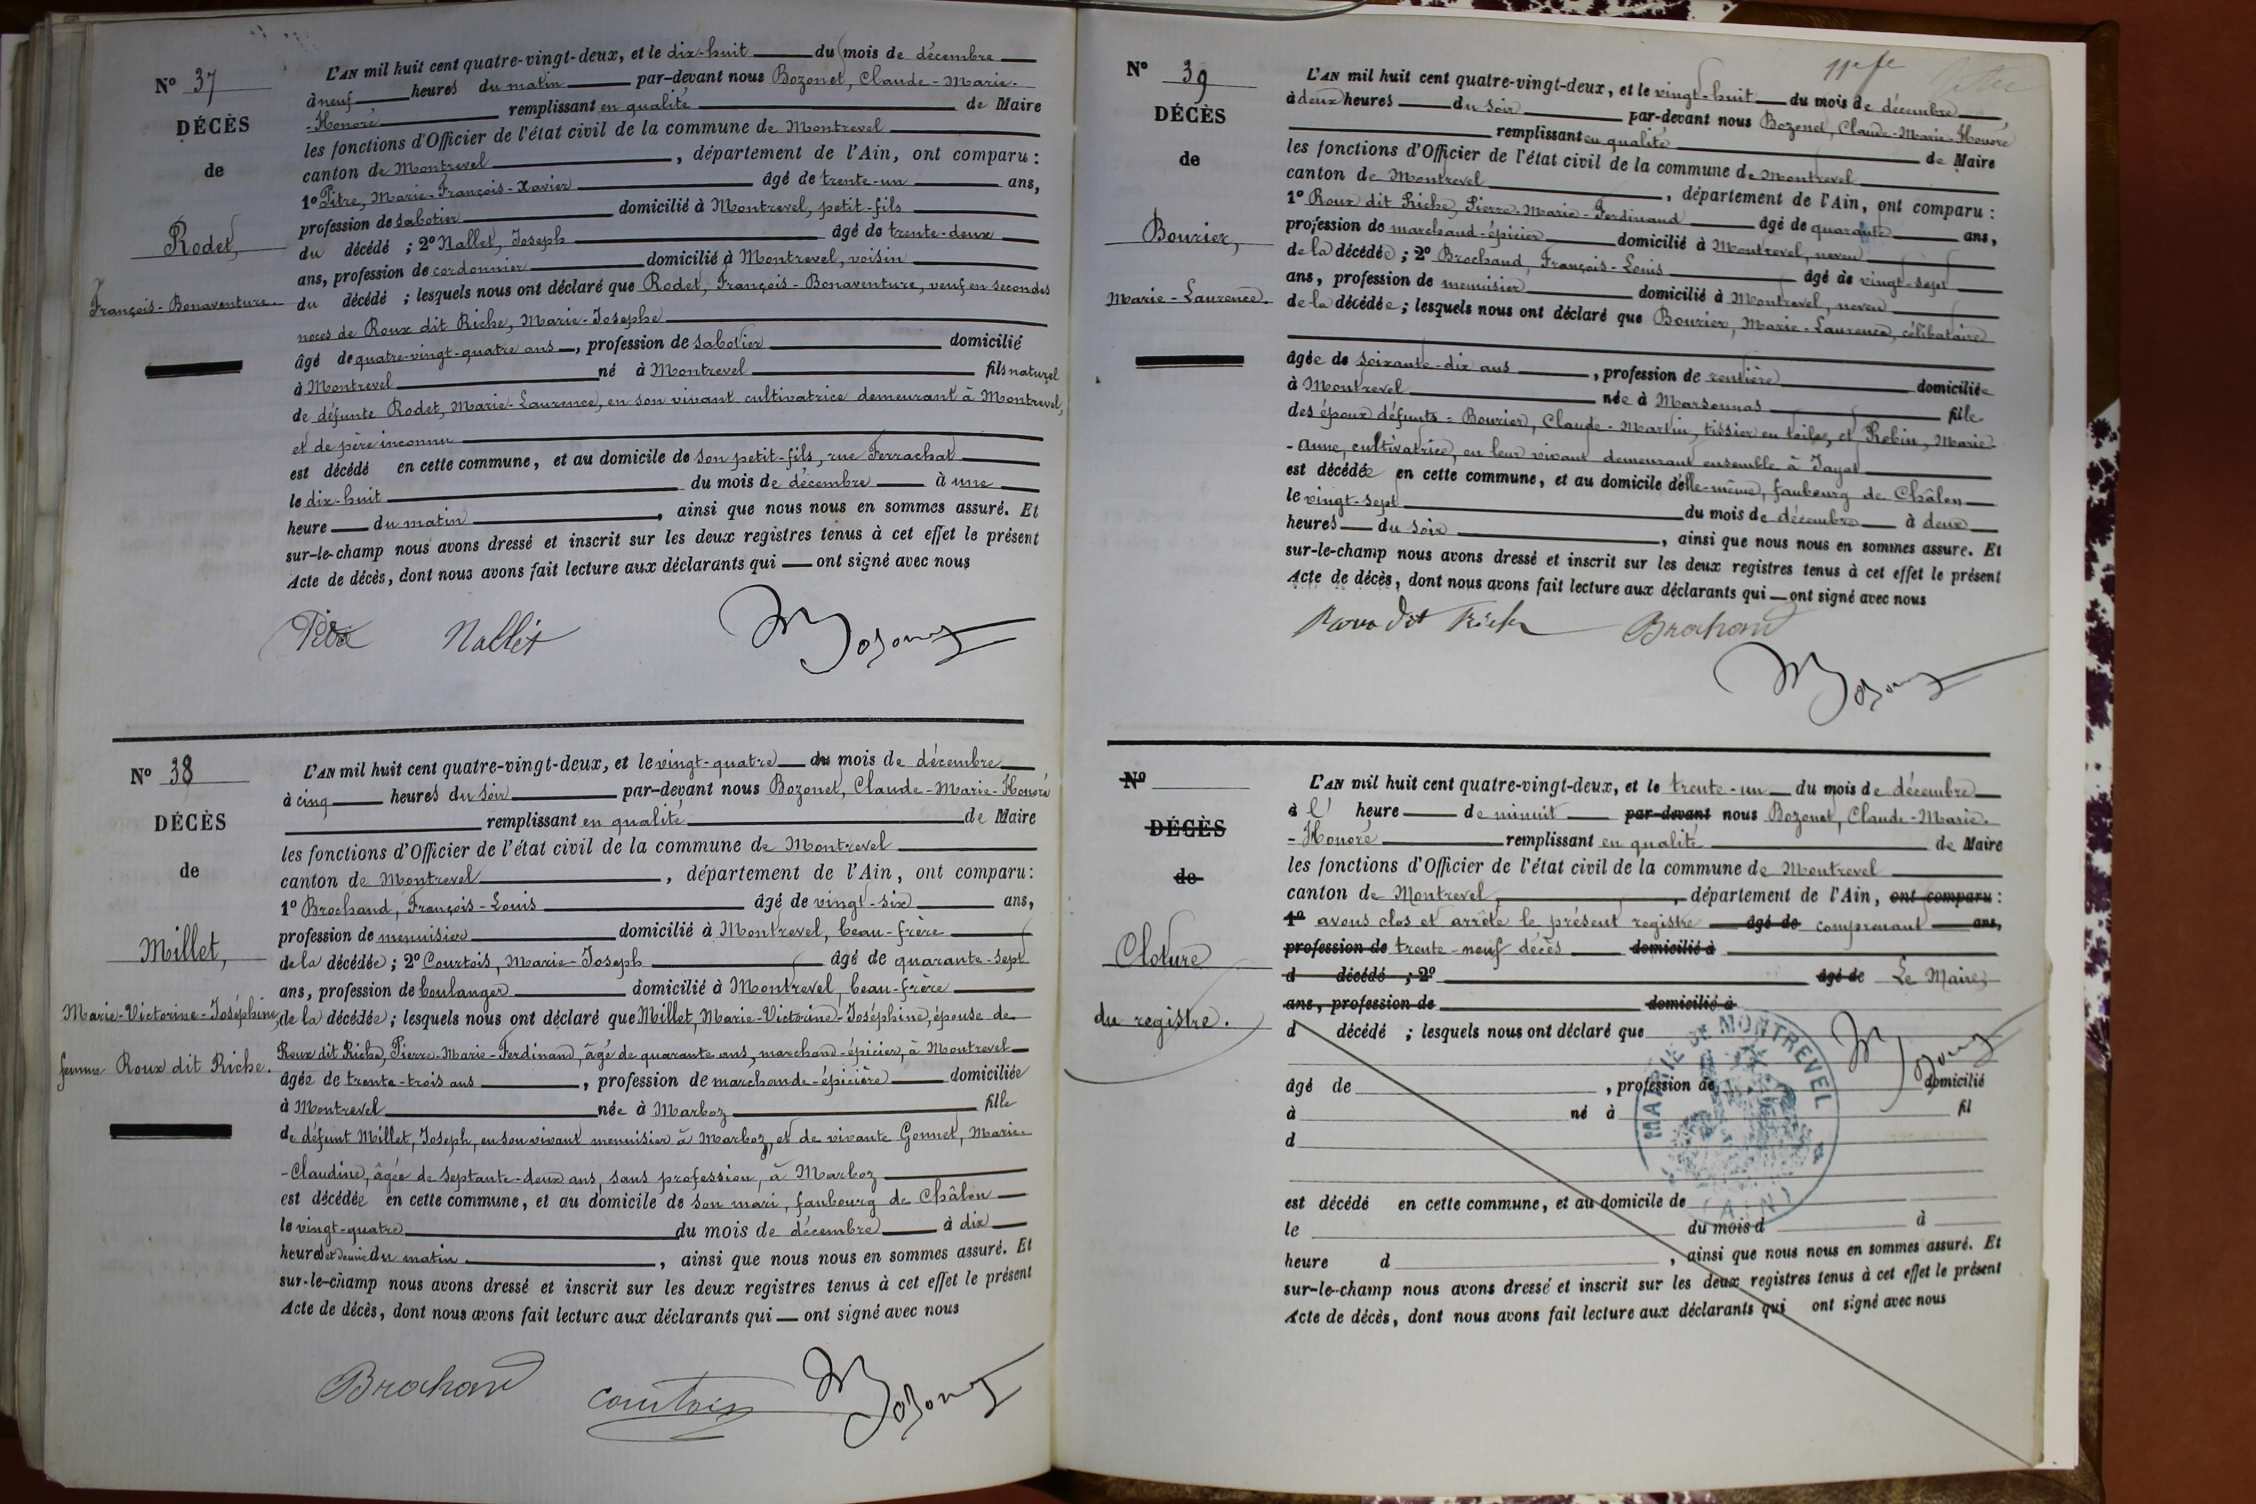 N° 37
DÉCÈS
de
Rodet,
François-Bonaventure.
L'AN mil huit cent quatre-vingt-deux, et le dix-huit du mois de décembre
à neuf heures du matin par-devant nous Bozonet, Claude-Marie-
-Honoré remplissant en qualité de Maire
les fonctions d'Officier de l'état civil de la commune de Montrevel
canton de Montrevel, département de l'Ain, ont comparu :
1° Pitre, Marie-François-Xavier âgé de trente-un ans,
profession de sabotier domicilié à Montrevel, petit-fils
du décédé ; 2° Nallet, Joseph âgé de trente-deux
ans, profession de cordonnier domicilié à Montrevel, voisin
du décédé ; lesquels nous ont déclaré que Rodet, François-Bonaventure, veuf en secondes
noces de Roux dit Riche, Marie-Josephe
âgé de quatre-vingt-quatre ans, profession de sabotier domicilié
à Montrevel né à Montrevel fils naturel
de défunte Rodet, Marie-Laurence, en son vivant cultivatrice demeurant à Montrevel,
et de père inconnu
est décédé en cette commune, et au domicile de son petit-fils, rue Ferrachat
le dix-huit du mois de décembre à une
heure du matin, ainsi que nous nous en sommes assuré. Et
sur-le-champ nous avons dressé et inscrit sur les deux registres tenus à cet effet le présent
Acte de décès, dont nous avons fait lecture aux déclarants qui ont signé avec nous
Nallet Bozonet
N° 38
DÉCÈS
de
Millet,
Marie-Victorine-Joséphine,
femme Roux dit Riche.
L'AN mil huit cent quatre-vingt-deux, et le vingt-quatre du mois de décembre
à cinq heures du soir par-devant nous Bozonet, Claude-Marie-Honoré
remplissant en qualité de Maire
les fonctions d'Officier de l'état civil de la commune de Montrevel
canton de Montrevel, département de l'Ain, ont comparu :
1° Brochand, François-Louis âgé de vingt-six ans,
profession de menuisier domicilié à Montrevel, beau-frère
de la décédée ; 2° Courtois, Marie-Joseph âgé de quarante-sept
ans, profession de boulanger domicilié à Montrevel, beau-frère
de la décédée ; lesquels nous ont déclaré que Millet, Marie-Victorine-Joséphine, épouse de
Roux dit Riche, Pierre-Marie-Ferdinand, âgé de quarante ans, marchand-épicier, à Montrevel
âgée de trente-trois ans, profession de marchande-épicière domiciliée
à Montrevel née à Marboz fille
de défunt Millet, Joseph, en son vivant menuisier à Marboz, et de vivante Gonnet, Marie-
-Claudine, âgée de septante-deux ans, sans profession, à Marboz
est décédée en cette commune, et au domicile de son mari, faubourg de Châlon
le vingt-quatre du mois de décembre à dix
heures et demie du matin, ainsi que nous nous en sommes assuré. Et
sur-le-champ nous avons dressé et inscrit sur les deux registres tenus à cet effet le présent
Acte de décès, dont nous avons fait lecture aux déclarants qui ont signé avec nous
Brochand Courtois Bozonet
N° 39
DÉCÈS
de
Bourier,
Marie-Laurence.
L'AN mil huit cent quatre-vingt-deux, et le vingt-huit du mois de décembre,
à deux heures du soir par-devant nous Bozonet, Claude-Marie-Honoré
remplissant en qualité de Maire
les fonctions d'Officier de l'état civil de la commune de Montrevel
canton de Montrevel, département de l'Ain, ont comparu :
1° Roux dit Riche, Pierre-Marie-Ferdinand âgé de quarante ans,
profession de marchand-épicier domicilié à Montrevel, neveu
de la décédée ; 2° Brochand, François-Louis âgé de vingt-sept
ans, profession de menuisier domicilié à Montrevel, neveu
de la décédée ; lesquels nous ont déclaré que Bourier, Marie-Laurence, célibataire
âgée de soixante-dix ans, profession de rentière domiciliée
à Montrevel née à Marsonnas fille
des époux défunts = Bourier, Claude-Martin, tissier en toile, et Robin, Marie-
-Anne, cultivatrice, en leur vivant demeurant ensemble à Jayat
est décédée en cette commune, et au domicile d'elle-même, faubourg de Châlon
le vingt-sept du mois de décembre à deux
heures du soir, ainsi que nous nous en sommes assuré. Et
sur-le-champ nous avons dressé et inscrit sur les deux registres tenus à cet effet le présent
Acte de décès, dont nous avons fait lecture aux déclarants qui ont signé avec nous
Roux dit Riche Brochand
Bozonet
N°
DÉCÈS
de
Cloture
du registre.
L'AN mil huit cent quatre-vingt-deux, et le trente-un du mois de décembre
à l'heure de minuit par-devant nous Bozonet, Claude-Marie-
-Honoré remplissant en qualité de Maire
les fonctions d'Officier de l'état civil de la commune de Montrevel
canton de Montrevel, département de l'Ain, ont comparu :
1° avons clos et arrêté le présent registre âgé de comprenant ans,
profession de trente-neuf décès domicilié à
d décédé ; 2° âgé de Le Maire,
ans, profession de domicilié à
d décédé ; lesquels nous ont déclaré que
Bozonet
MAIRIE DE MONTREVEL
(AIN)
âgé de , profession de domicilié
à né à fil
d
est décédé en cette commune, et au domicile de
le du mois d à
heure d , ainsi que nous nous en sommes assuré. Et
sur-le-champ nous avons dressé et inscrit sur les deux registres tenus à cet effet le présent
Acte de décès, dont nous avons fait lecture aux déclarants qui ont signé avec nous